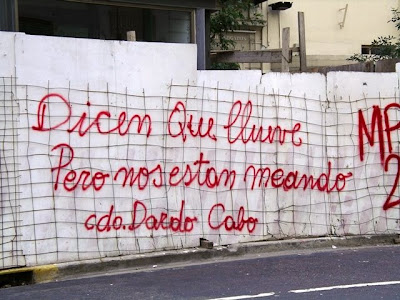 Dicen Que llueve
Pero nos estan meando
cdo. Dardo Cabo
MP
2